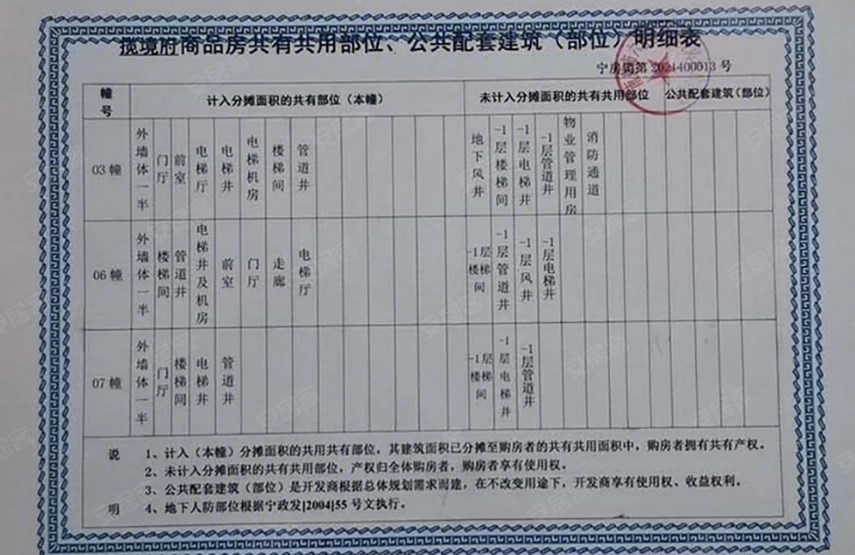 揽境府商品房共有共用部位、公共配套建筑（部位）明细表
宁房销第2024400013号
幢号 计入分摊面积的共有部位（本幢） 未计入分摊面积的共有共用部位 公共配套建筑（部位）
03幢 外墙体一半 门厅 前室 电梯厅 电梯井 电梯机房 楼梯间 管道井 地下风井 -1层楼梯间 -1层电梯井 -1层管道井 物业管理用房 消防通道
06幢 外墙体一半 楼梯间 管道井 电梯井及机房 前室 门厅 走廊 电梯厅 -1层楼梯间 -1层管道井 -1层风井 -1层电梯井
07幢 外墙体一半 门厅 楼梯间 电梯井 管道井 -1层楼梯间 -1层电梯井 -1层管道井
说明
1、计入（本幢）分摊面积的共用共有部位，其建筑面积已分摊至购房者的共有共用面积中，购房者拥有共有产权。
2、未计入分摊面积的共有共用部位，产权归全体购房者，购房者享有使用权。
3、公共配套建筑（部位）是开发商根据总体规划需求而建，在不改变用途下，开发商享有使用权、收益权利。
4、地下人防部位根据宁政发[2004]55号文执行。